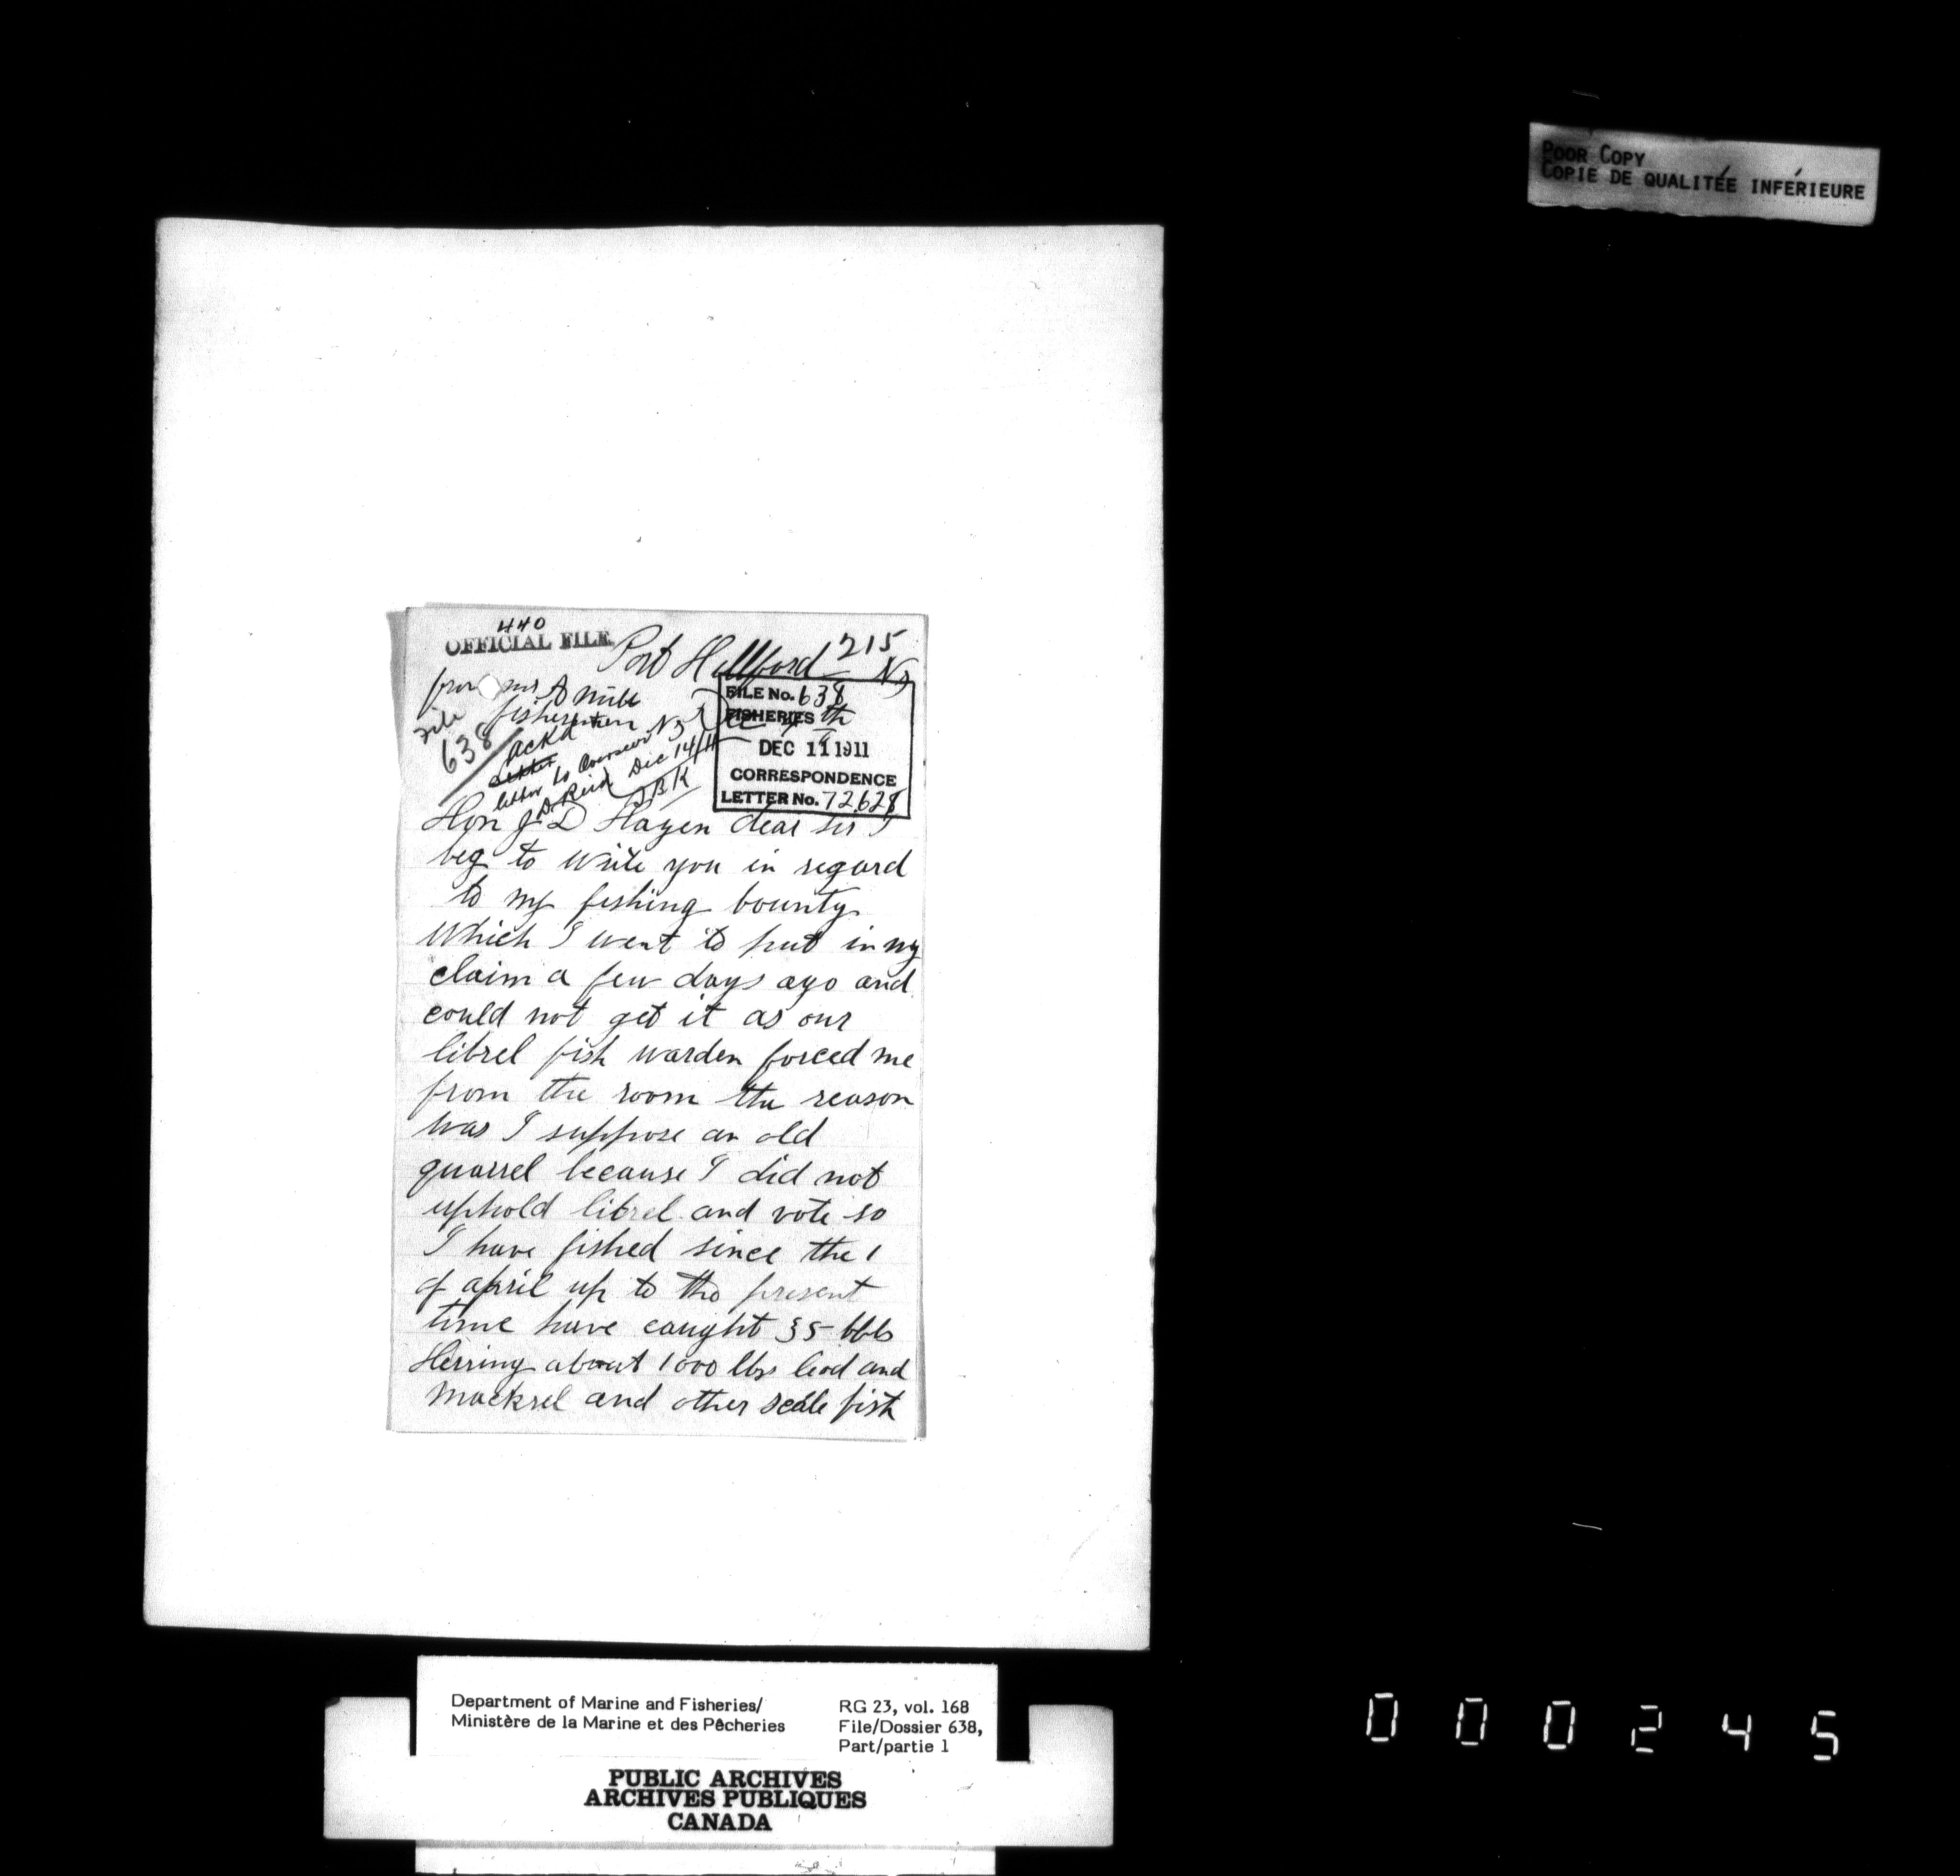 POOR COPY
COPIE DE QUALITÉE INFÉRIEURE
440
OFFICIAL FILE
Port Hillford 215
NS
file
638
fishermen
Ackd
letter to Overseer NS
D. Reid Dec 14/11
JBK
FILE No. 638
FISHERIES
DEC 11 1911
CORRESPONDENCE
LETTER No. 72628
Hon J D Hazen dear sir I
beg to write you in regard
to my fishing bounty
which I went to put in my
claim a few days ago and
could not get it as our
librel fish warden forced me
from the room the reason
was I suppose an old
quarrel because I did not
uphold librel and vote so
I have fished since the 1
of april up to the present
time have caught 35 bbls
Herring about 1000 lbs Cod and
mackrel and other scale fish
Department of Marine and Fisheries/
Ministère de la Marine et des Pêcheries
RG 23, vol. 168
File/Dossier 638,
Part/partie 1
PUBLIC ARCHIVES
ARCHIVES PUBLIQUES
CANADA
000245